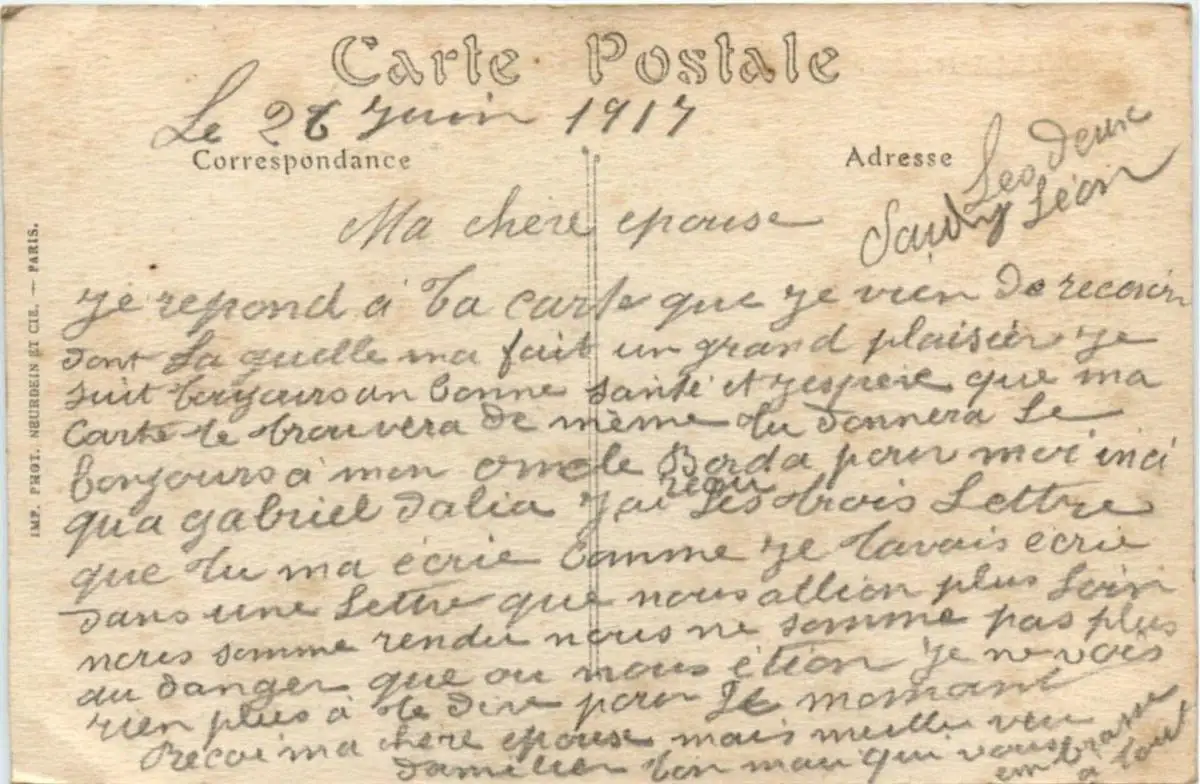 Carte Postale
Le 26 Juin 1917
Correspondance
Adresse
Les deux
Léon
Ma chere epouse
Je repond a ta carte que je vien de recevoir
dont la quelle ma fait un grand plaisir Je
suit toujours an bonne santé et j'espere que ma
Carte te trouvera de même tu donnera le
bonjours a mon oncle Borda pour moi inci
qua gabriel dalia J'ai recu les trois Lettre
que tu ma écrie Comme je tavais écrie
dans une Lettre que nous allion plus loin
nous somme rendu nous ne somme pas plus
au danger que ou nous étion Je ne vois
rien plus à te dire pour le momant
Recoi ma chere epouse mais meilleu veu
damitier ton mari qui vous embrasse
a tout
IMP. PHOT. NEURDEIN ET CIE. — PARIS.